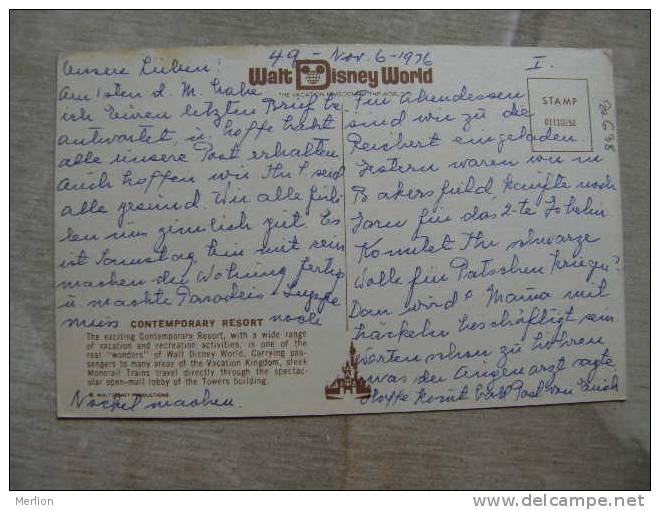 49 - Nov. 6 - 1976
I.
Walt Disney World
THE VACATION KINGDOM OF THE WORLD
STAMP
01110252
Unsere Lieben!
Am 1sten d. M. habe
ich Euren letzten Brief be
antwortet, u. hoffe habt
alle unsere Post erhalten
Auch hoffen wir Ihr seid
alle gesund. Wir alle füh-
len uns ziemlich gut. Es
ist Samstag, bin mit rein
machen der Wohnung fertig
u machte Paradeis-Suppe
muss noch
CONTEMPORARY RESORT
The exciting Contemporary Resort, with a wide range
of vacation and recreation activities, is one of the
real "wonders" of Walt Disney World. Carrying pas-
sengers to many areas of the Vacation Kingdom, sleek
Monorail Trains travel directly through the spectac-
ular open-mall lobby of the Towers building.
© WALT DISNEY PRODUCTIONS
Nockel machen.
Für Abendessen
sind wir zu die
Reichert eingeladen.
Gestern waren wir in
Bakersfield kaufte noch
Garn für das 2-te
Könntet Ihr schwarze
Wolle für Patschen kriegen?
Dan wird Mama mit
häckeln beschäftigt sein
warten schon zu hören
was der Augenarzt sagte
Hoffe komt bald Post von Euch
Merlion
www.delcampe.net